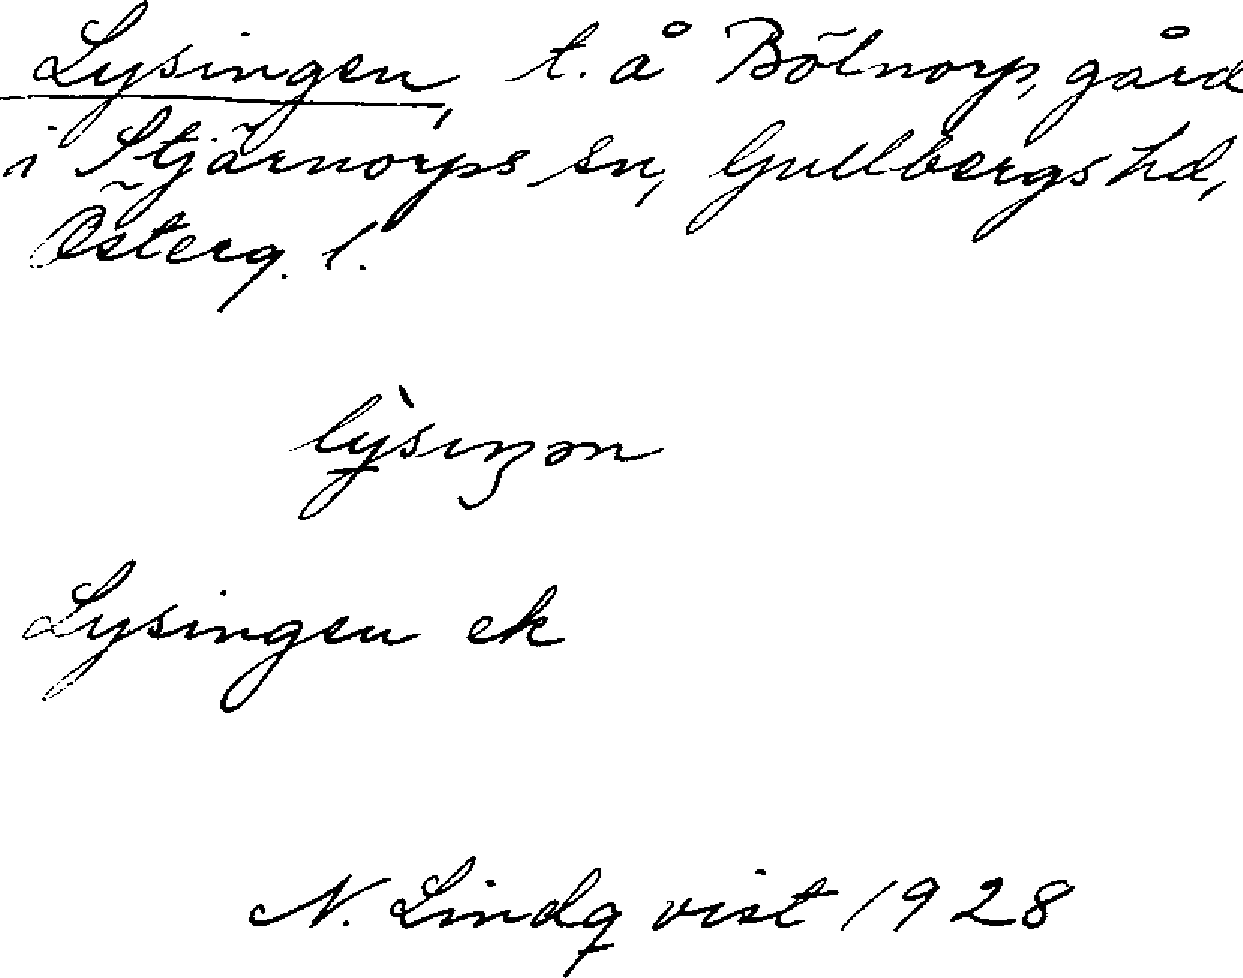 Lysingen, t. å Bölnorp, gård
i Stjärnorps sn, Gullbergs hd,
Österg. l.
lỳsiŋən
Lysingen ek
N. Lindqvist 1928